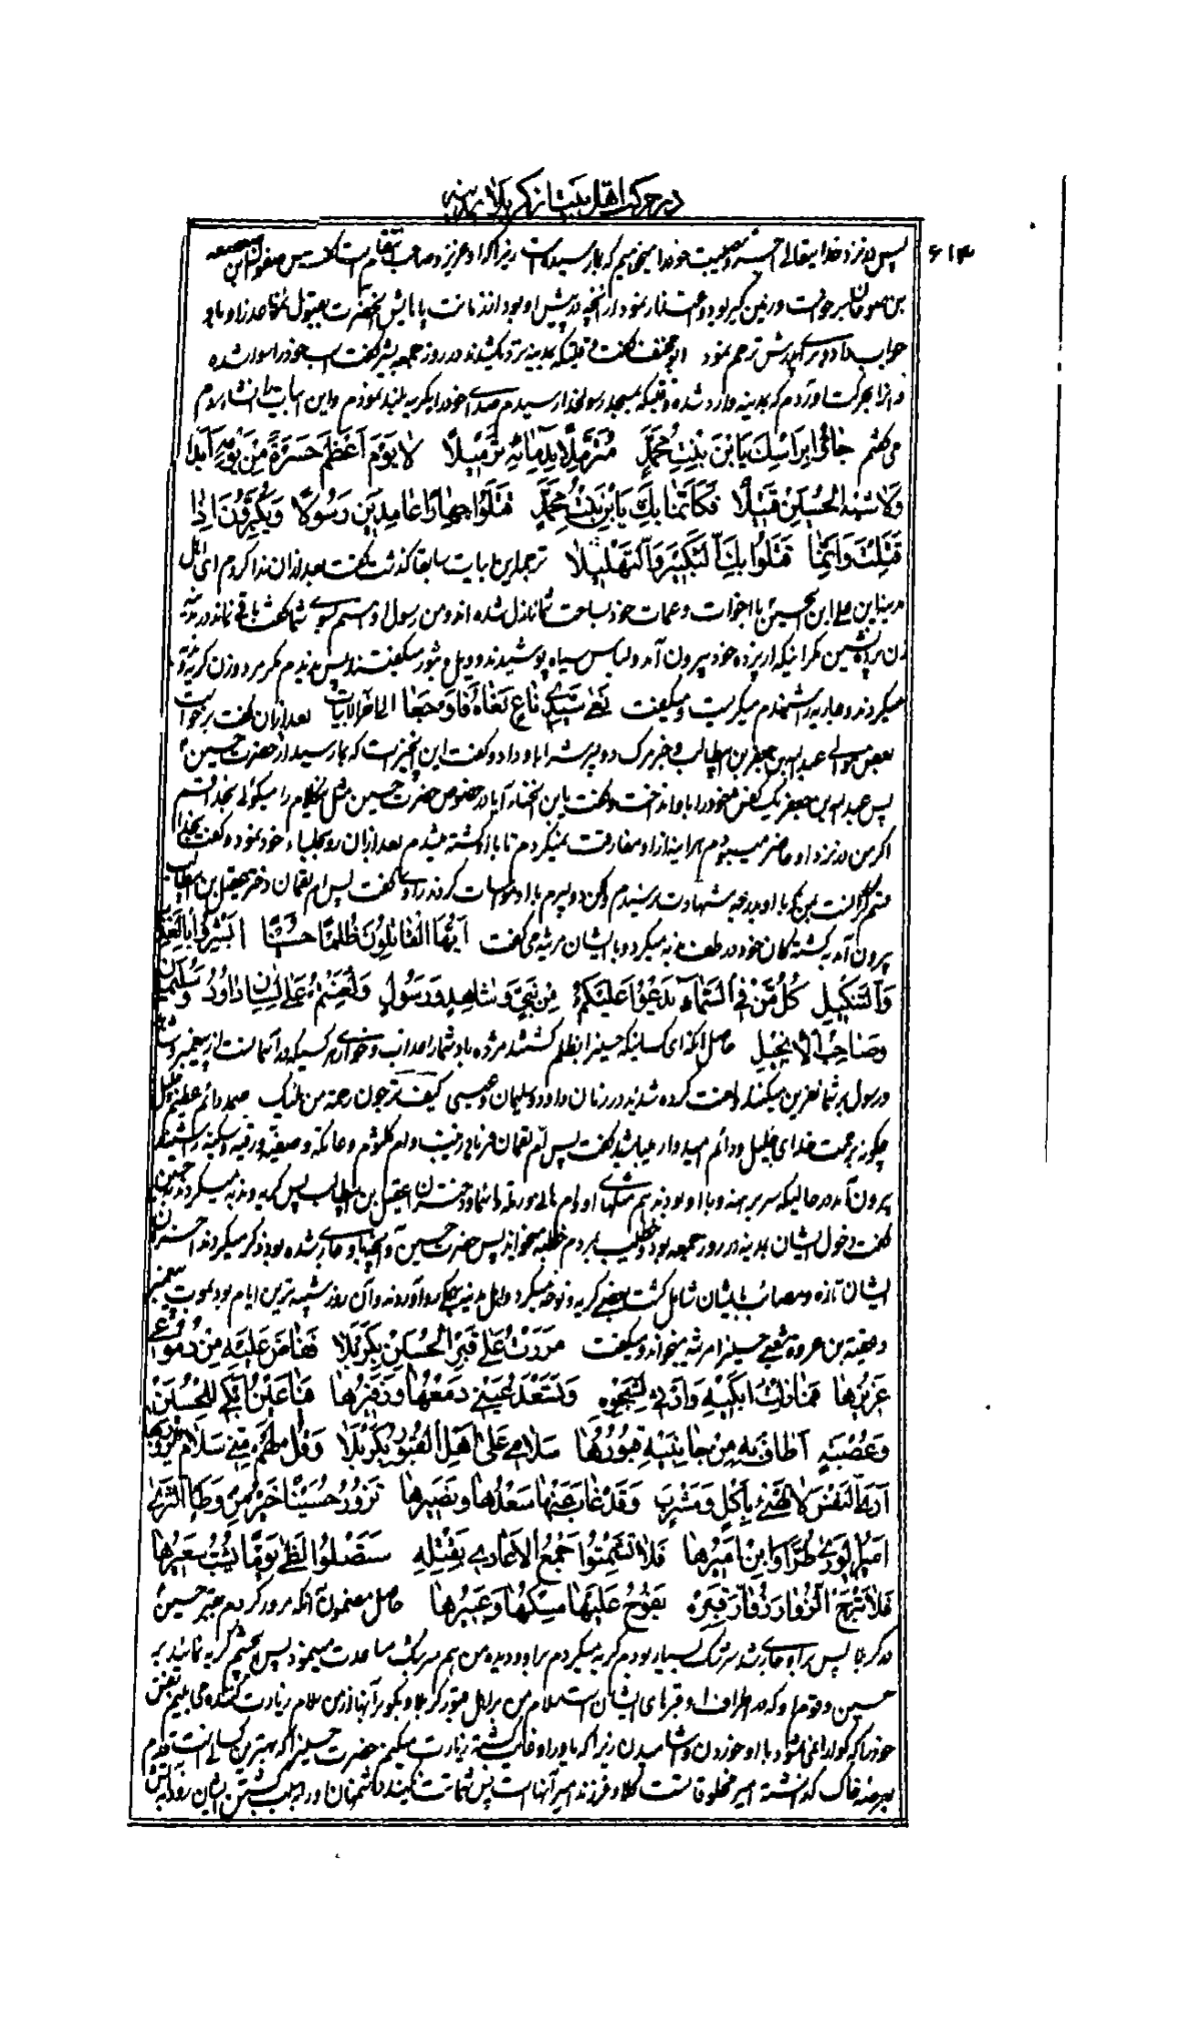 در حرکت اهل بیت از کربلا بمدینه
۶۱۳
پس در نزد خدایتعالی مصیبت خود را میخواهیم که بما رسیده است زیرا که او عزیز و صاحب انتقام است پس صعصعه
بن صوحان برخواست و زمین گیر بود و اعتذار نمود از آنچه در پیش او بود از زمانت پاهایش آنحضرت بقبول معذرت او را
جواب داد و بر پدرش ترحم نمود ابو مخنف گفت وقتیکه بمدینه نزدیک شدند در روز جمعه بشیر گفت اسب خود را سوار شده
و از آنجا حرکت آوردم که بمدینه وارد شده وقتیکه بمسجد رسولخدا رسیدم صدای خود را بگریه بلند نمودم و این ابیات انشاء
می کنم جاؤا براسك یابن بنت محمد مترملا بدمائه ترمیلا لا یوم اعظم حسرة من یومه ابدا
ولا شبه الحسین قتیلا فکانما بك یابن بنت محمد قتلوا جهارا عامدین رسولا ویکبرون اذا
قتلت وانما قتلوا بك التکبیر والتهلیلا ترجمه این ابیات سابقا گذشت گفت بعد از آن ندا کردم ای اهل
مدینه این علی ابن الحسین با اخوات و عمات خود بساحت شما نازل شده اند و من رسول اویم بسوی شما گفت باقی نماند در مدینه
زن پرده نشین مگر اینکه از پرده خود بیرون آمد و لباس سیاه پوشیدند و ویل و ثبور میگفتند پس ندیدم مگر مرد و زن گریه
میکردند و جاریه شنیدم میگریست و میگفت نعی سیدی ناع نعاه فاوجعا الی آخر الابیات بعد از آن گفت برخواست
بعض موالی عبدالله بن جعفر بن ابیطالب و خبر مرگ دو پسرش را باو داد و گفت این چیزیست که بما رسید از حضرت حسین
پس عبدالله بن جعفر یک کفش خود را باو انداخت و گفت یابن اللخناء آیا در خصوص حضرت حسین مثل این کلام را میگوئی بخدا قسم
اگر من در نزد او حاضر میبودم هرآینه از او مفارقت نمیکردم تا با او کشته میشدم بعد از آن رو بجلساء خود نمود و گفت بخدا
بیرون آمد بکشته گان خود در طف ندبه میکرد و با ایشان مرثیه می گفت ایها القاتلون ظلما حسینا ابشروا بالعذاب
والتنکیل کل من فی السماء یدعوا علیکم من نبی و شاهد و رسول ولعنتم علی لسان داود وسلیمان
وصاحب الانجیل حاصل آنکه ای کسانیکه حسین را بظلم کشتند مژده باد شما را عذاب و خواری هر کسیکه در آسمان است از پیغمبر
و رسول بر شما نفرین میکنند و لعنت کرده شدید در زبان داود و سلیمان و عیسی کیف ترجون رحمة من ملیک صمد دائم عظیم جلیل
چگونه برحمت خدای جلیل و دائم امیدوار میباشید گفت پس ام لقمان و زینب و ام کلثوم و عاتکه و صفیه و رقیه و سکینه را شنیده
بیرون آمد در حالیکه سر برهنه و با او بودند
گفت دخول ایشان بمدینه در روز جمعه بود و خطیب بمردم خطبه میخواند پس حضرت حسین و آنچه باو جاری شده بود ذکر میکردند احزان
ایشان تازه و مصائب بایشان شامل گشت بعضی گریه و نوحه میکرد و اهل مدینه و آن روز شبیه ترین ایام بود بموت پیغمبر
و عقبة بن عروة حسین را مرثیه میخواند و میگفت مررت علی قبر الحسین بکربلا ففاض علیه من دموعی
غزیرها فما زلت ابکیه وارثی لشجوه وتسعد عینی دمعها وزفیرها فیا عین ابکی للحسین
وعصبة اطاف به من جانبیه قبورها سلامی علی اهل القبور بکربلا وقل لهم منی سلام یزورها
اری النفس لا تهنی باکل ومشرب وقد غاب عنها سعدها ونصیرها نزور حسینا خیر من وطا الثری
امیر الوری طرا وابن امیرها فلا تشمتوا جمع الاعادی بقتله ستصلوا لظی یوما یشب سعیرها
فلا تبرح الزوار زوار قبره یفوح علیها مسکها وعبیرها حاصل مضمون آنکه مرور کردم بقبر حسین
در کربلا پس بر او جاری شد سرشک بسیار بودم گریه میکردم بر او و دیده من هم سرشک مساعدت مینمود پس ای چشم گریه نمائید بر
حسین و قوم او که در اطراف او قبرهای ایشان است سلام من بر اهل قبور کربلا و بگو بر آنها از من سلام زیارت کننده می بینم نفس
خود را که گوارا نمی شود با او خوردن و آشامیدن زیرا که یاور او غایب گشته زیارت میکنم حضرت حسین را که بهترین کسانی است قدم
بعرصه خاک گذاشته امیر مخلوقات کلا و فرزند امیر آنها است پس شماتت نکنید دشمنان